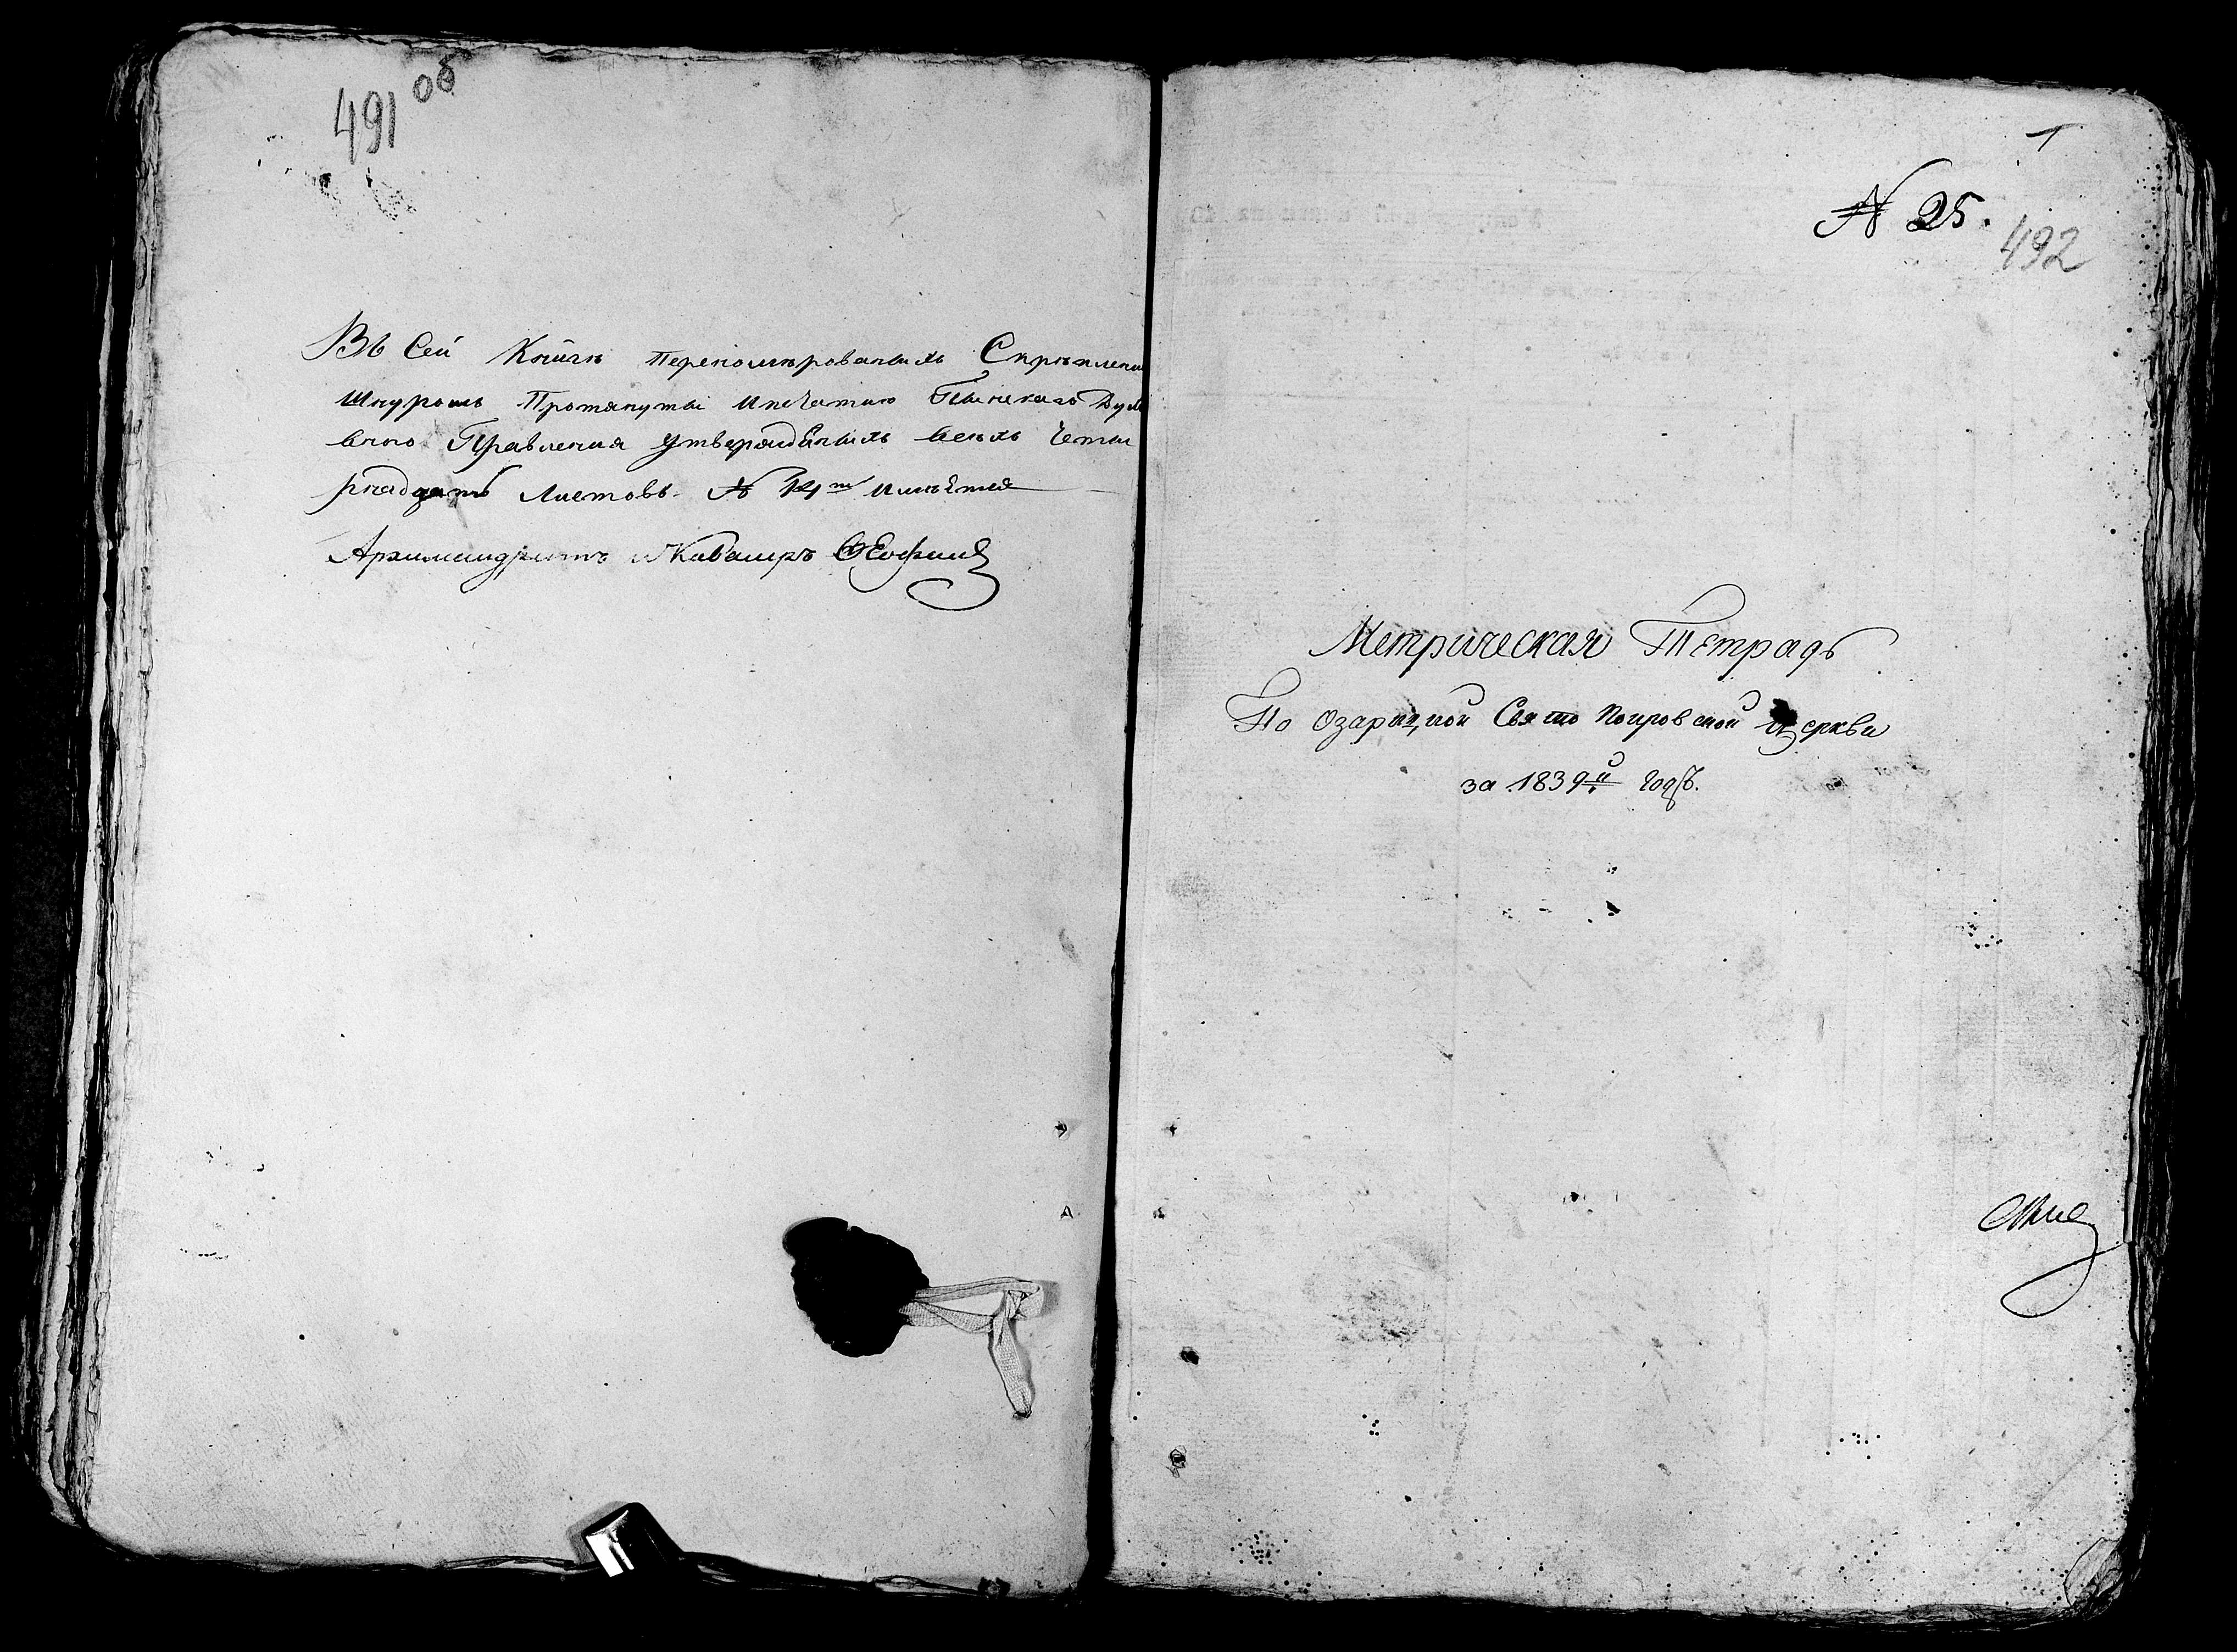 491 об
Въ Сей Книгѣ Переномѣрованыхъ Скрѣплены
Шнуромъ Протянуты Ипечатию Пинскаго Духо
внго Правления Утверждёныхъ всѣхъ Четы
рнадцать Листовъ. № 14ть Имѣется
Архимандритъ и Кавалеръ
1
№ 25.
492
Метрическая Тетрадь
По Озарицкой Свято Покровской Церкви
за 1839й годъ.